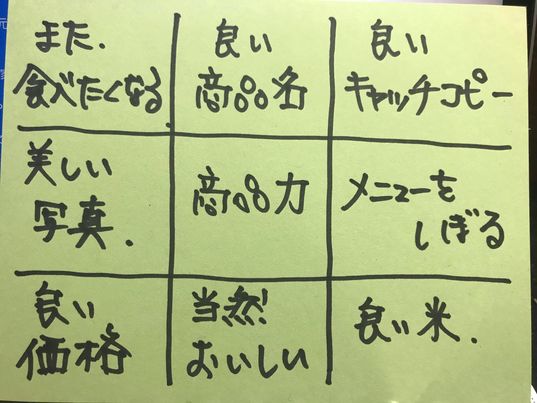 また.
食べたくなる
良い
商品名
良い
キャッチコピー
美しい
写真.
商品力
メニューを
しぼる
良い
価格
当然
おいしい
良い米.